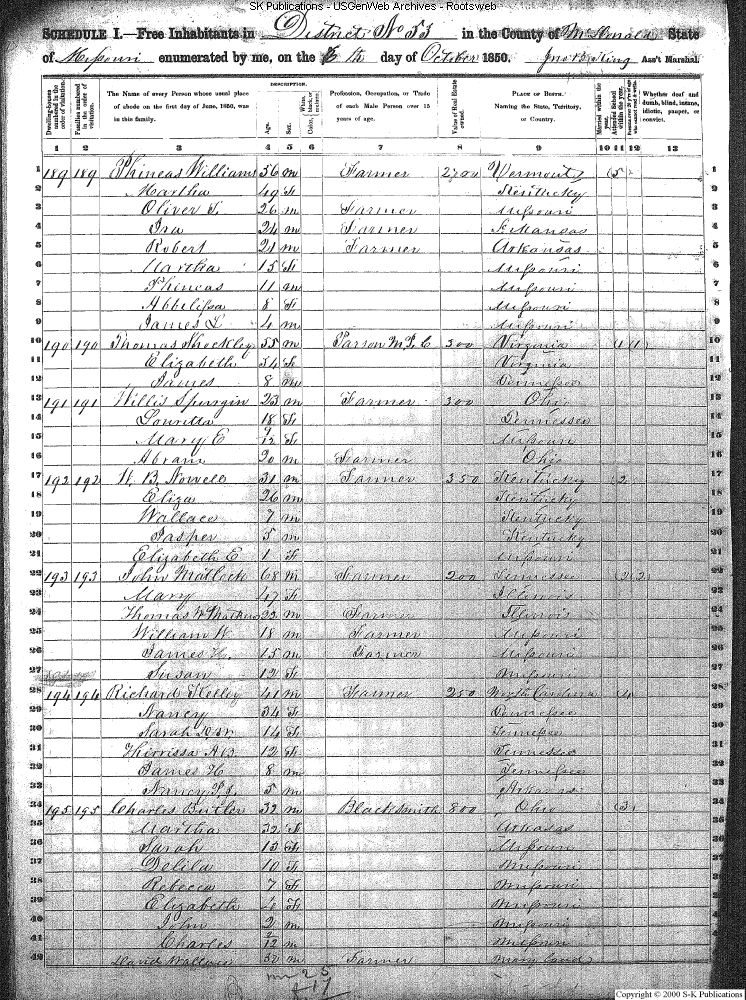 SK Publications - USGenWeb Archives - Rootsweb
SCHEDULE I.—Free Inhabitants in District No 53 in the County of McDonald State
of Missouri enumerated by me, on the 8 th day of October 1850. King Ass't Marshal.
Dwelling-houses numbered in the order of visitation. Families numbered in the order of visitation. The Name of every Person whose usual place of abode on the first day of June, 1850, was in this family. DESCRIPTION. Age. Sex. Color, White, black, or mulatto. Profession, Occupation, or Trade of each Male Person over 15 years of age. Value of Real Estate owned. PLACE OF BIRTH. Naming the State, Territory, or Country. Married within the year. Attended School within the year. Persons over 20 y'rs of age who cannot read & write. Whether deaf and dumb, blind, insane, idiotic, pauper, or convict.
1 2 3 4 5 6 7 8 9 10 11 12 13
1 189 189 Phineas Williams 56 m Farmer 2700 Vermont 1
2 Martha 49 F Kentucky 2
3 Oliver T. 26 m Farmer Missouri 3
4 Ira 24 m Farmer Arkansas 4
5 Robert 21 m Farmer Arkansas 5
6 Martha 15 F Missouri 6
7 Phineas 11 m Missouri 7
8 Abbelissa 8 F Missouri 8
9 James L 4 m Missouri 9
10 190 190 Thomas Shockley 55 m Parson M. E. C 300 Virginia 10
11 Elizabeth 54 F Virginia 11
12 James 8 m Tennessee 12
13 191 191 Willis Spurrgin 23 m Farmer 300 Ohio 13
14 Louretta 18 F Tennessee 14
15 Mary E 9/12 F Missouri 15
16 Abram 20 m Farmer Ohio 16
17 192 192 W. B. Nowell 31 m Farmer 350 Kentucky (2 17
18 Eliza 26 m Kentucky 18
19 Wallace 7 m Kentucky 19
20 Jasper 5 m Kentucky 20
21 Elizabeth E 1 F Missouri 21
22 193 193 John Matlock 68 m Farmer 200 Tennessee 22
23 Mary 47 F Illinois 23
24 Thomas W 22 m Farmer Illinois 24
25 William W. 18 m Farmer Missouri 25
26 James H. 15 m Farmer Missouri 26
27 Susan 12 F Missouri 27
28 194 194 Richard Kelley 41 m Farmer 250 North Carolina (4 28
29 Nancy 34 F Tennessee 29
30 Sarah 14 F Tennessee 30
31 Thirrissa A B. 12 F Tennessee 31
32 James H 8 m Tennessee 32
33 Nancy 5 m Arkansas 33
34 195 195 Charles Butler 32 m Blacksmith 800 Ohio (3 34
35 Martha 32 F Arkansas 35
36 Sarah 13 F Missouri 36
37 Delila 10 F Missouri 37
38 Rebecca 7 F Missouri 38
39 Elizabeth F Missouri 39
40 John 2 m Missouri 40
41 Charles m Missouri 41
42 David Wallace 30 m Farmer Maryland 42
m 25
F 17
Copyright © 2000 S-K Publications